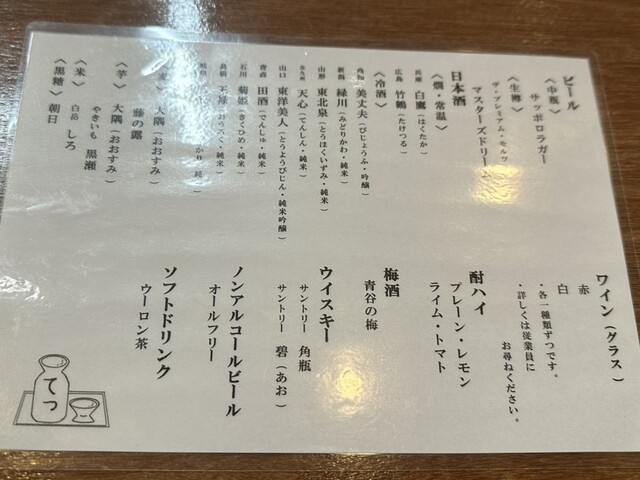 ビール
〈中瓶〉
サッポロラガー
〈生樽〉
ザ・プレミアム・モルツ
マスターズドリーム
日本酒
〈燗・常温〉
兵庫 白鷹(はくたか)
広島 竹鶴(たけつる)
〈冷酒〉
高知 美丈夫(びじょうふ・吟醸)
新潟 緑川(みどりかわ・純米)
山形 東北泉(とうほくいずみ・純米)
北九州 天心(てんしん・純米)
山口 東洋美人(とうようびじん・純米吟醸)
青森 田酒(でんしゅ・純米)
石川 菊姫(きくひめ・純米)
島根
大隅(おおすみ)
藤の露
〈芋〉
大隅(おおすみ)
やきいも 黒瀬
〈米〉
白岳 しろ
〈黒糖〉
朝日
ワイン(グラス)
赤
白
・各一種類ずつです。
・詳しくは従業員に
お尋ねください。
酎ハイ
プレーン・レモン
ライム・トマト
梅酒
青谷の梅
ウイスキー
サントリー 角瓶
サントリー 碧(あお)
ノンアルコールビール
オールフリー
ソフトドリンク
ウーロン茶
てつ